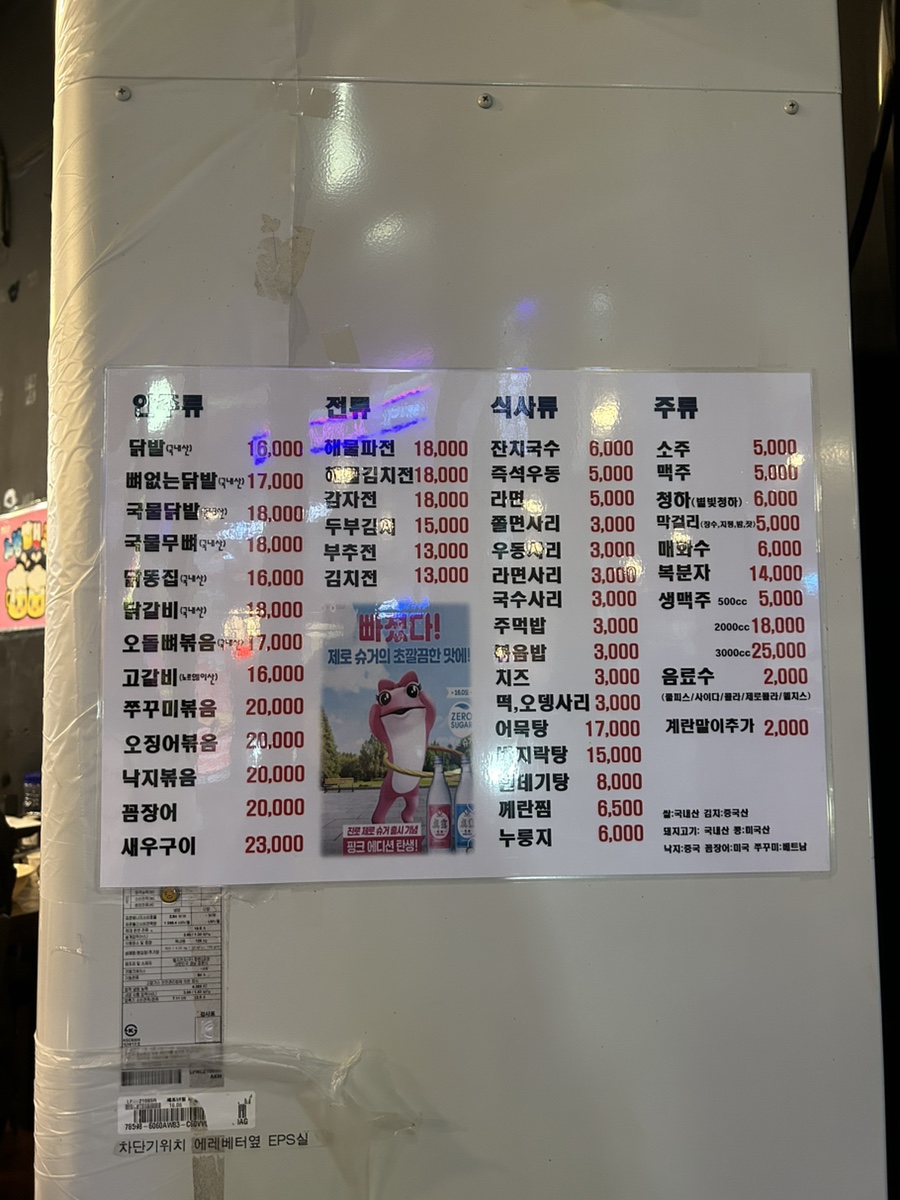 안주류
닭발(국내산) 16,000
뼈없는닭발(국내산) 17,000
국물닭발(국내산) 18,000
국물무뼈(국내산) 18,000
닭똥집(국내산) 16,000
닭갈비(국내산) 18,000
오돌뼈볶음(국내산) 17,000
고갈비(노르웨이산) 16,000
쭈꾸미볶음 20,000
오징어볶음 20,000
낙지볶음 20,000
꼼장어 20,000
새우구이 23,000
전류
해물파전 18,000
해물김치전 18,000
감자전 18,000
두부김치 15,000
부추전 13,000
김치전 13,000
빠졌다!
제로 슈거의 초깔끔한 맛에!
ZERO
SUGAR
진로 제로 슈거 출시 기념
핑크 에디션 탄생!
식사류
잔치국수 6,000
즉석우동 5,000
라면 5,000
쫄면사리 3,000
우동사리 3,000
라면사리 3,000
국수사리 3,000
주먹밥 3,000
볶음밥 3,000
치즈 3,000
떡,오뎅사리 3,000
어묵탕 17,000
바지락탕 15,000
번데기탕 8,000
께란찜 6,500
누룽지 6,000
주류
소주 5,000
맥주 5,000
청하(별빛청하) 6,000
막걸리(장수,지평,밤,잣) 5,000
매화수 6,000
복분자 14,000
생맥주 500cc 5,000
2000cc 18,000
3000cc 25,000
음료수 2,000
(쿨피스/사이다/콜라/제로콜라/웰치스)
계란말이추가 2,000
쌀:국내산 김치:중국산
돼지고기: 국내산 콩:미국산
낙지:중국 꼼장어:미국 쭈꾸미:베트남
차단기위치 에레베터옆 EPS실